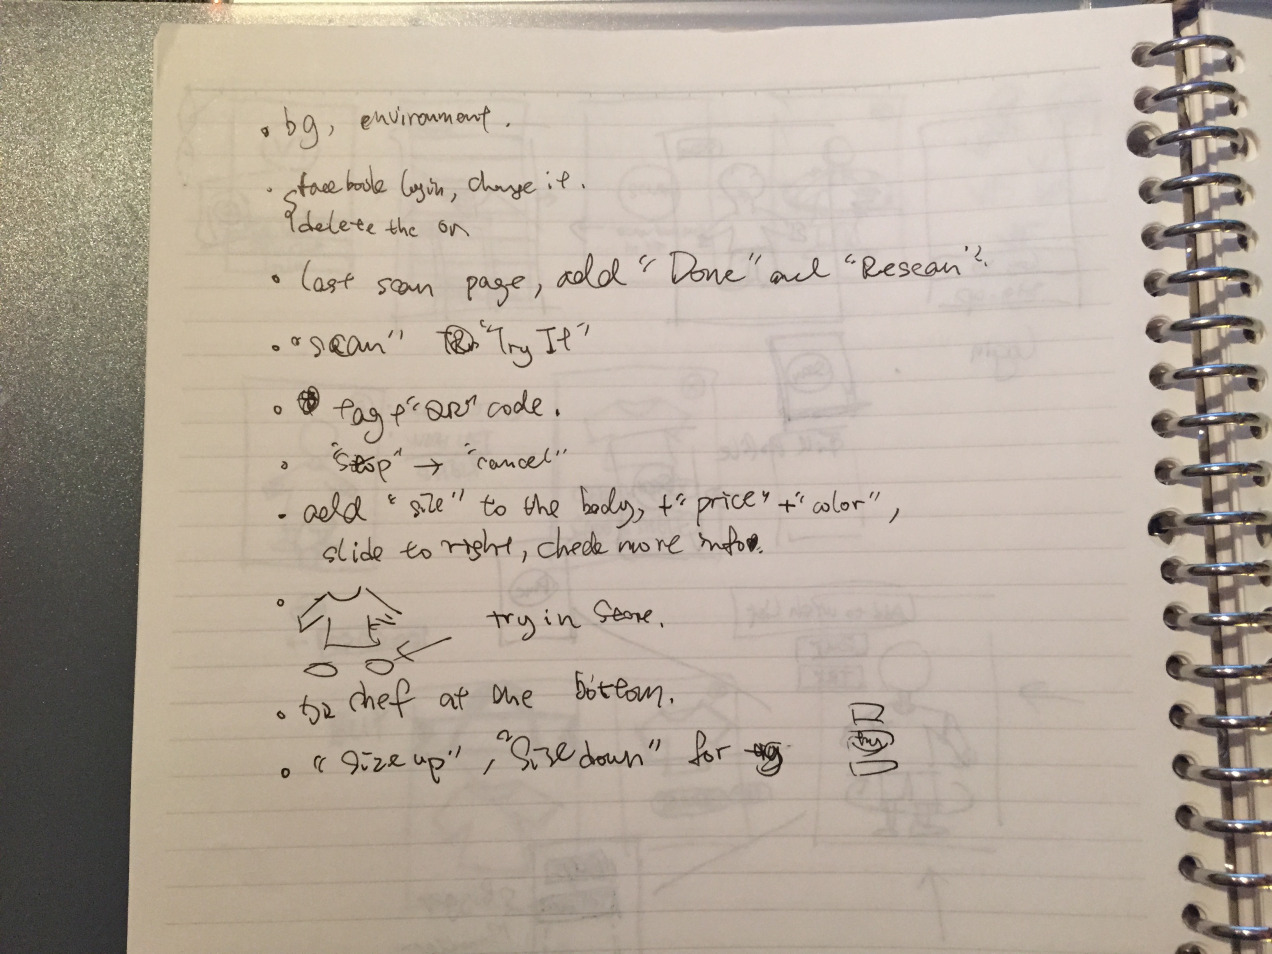 • bg, environment.
• facebook login, change it.
delete the on
• last scan page, add "Done" and "Rescan".
• "scan" "Try It"
• tag + "QR" code.
• "stop" → "cancel"
• add "size" to the body, + "price" + "color",
slide to right, check more info.
• try in store.
• chef at the bottom.
• "Size up", "Size down" for
try